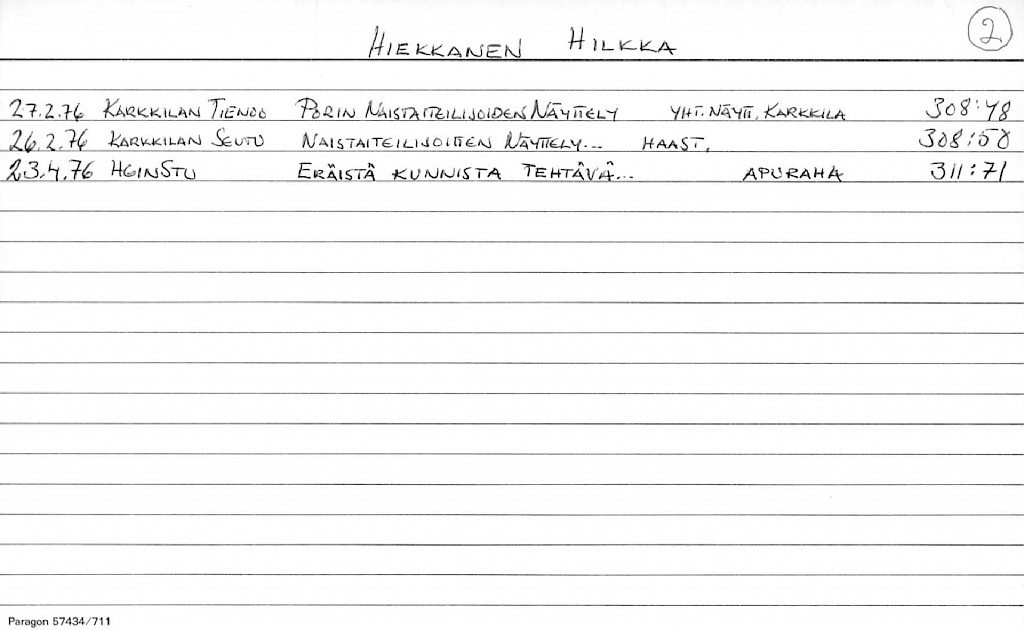 HIEKKANEN HILKKA 2
27.2.76 KARKKILAN TIENOO PORIN NAISTAITEILIJOIDEN NÄYTTELY YHT. NÄYTT. KARKKILA 308:48
26.2.76 KARKKILAN SEUTU NAISTAITEILIJOITTEN NÄYTTELY... HAAST. 308:50
23.4.76 HGINSTU ERÄISTÄ KUNNISTA TEHTÄVÄ... APURAHA 311:71
Paragon 57434/711